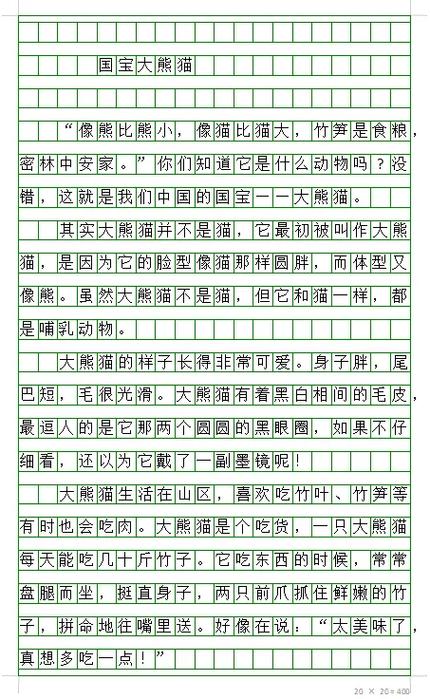 国宝大熊猫
“像熊比熊小，像猫比猫大，竹笋是食粮，
密林中安家。”你们知道它是什么动物吗？没
错，这就是我们中国的国宝——大熊猫。
其实大熊猫并不是猫，它最初被叫作大熊
猫，是因为它的脸型像猫那样圆胖，而体型又
像熊。虽然大熊猫不是猫，但它和猫一样，都
是哺乳动物。
大熊猫的样子长得非常可爱。身子胖，尾
巴短，毛很光滑。大熊猫有着黑白相间的毛皮，
最逗人的是它那两个圆圆的黑眼圈，如果不仔
细看，还以为它戴了一副墨镜呢！
大熊猫生活在山区，喜欢吃竹叶、竹笋等
有时也会吃肉。大熊猫是个吃货，一只大熊猫
每天能吃几十斤竹子。它吃东西的时候，常常
盘腿而坐，挺直身子，两只前爪抓住鲜嫩的竹
子，拼命地往嘴里送。好像在说：“太美味了，
真想多吃一点！”
20 × 20 = 400